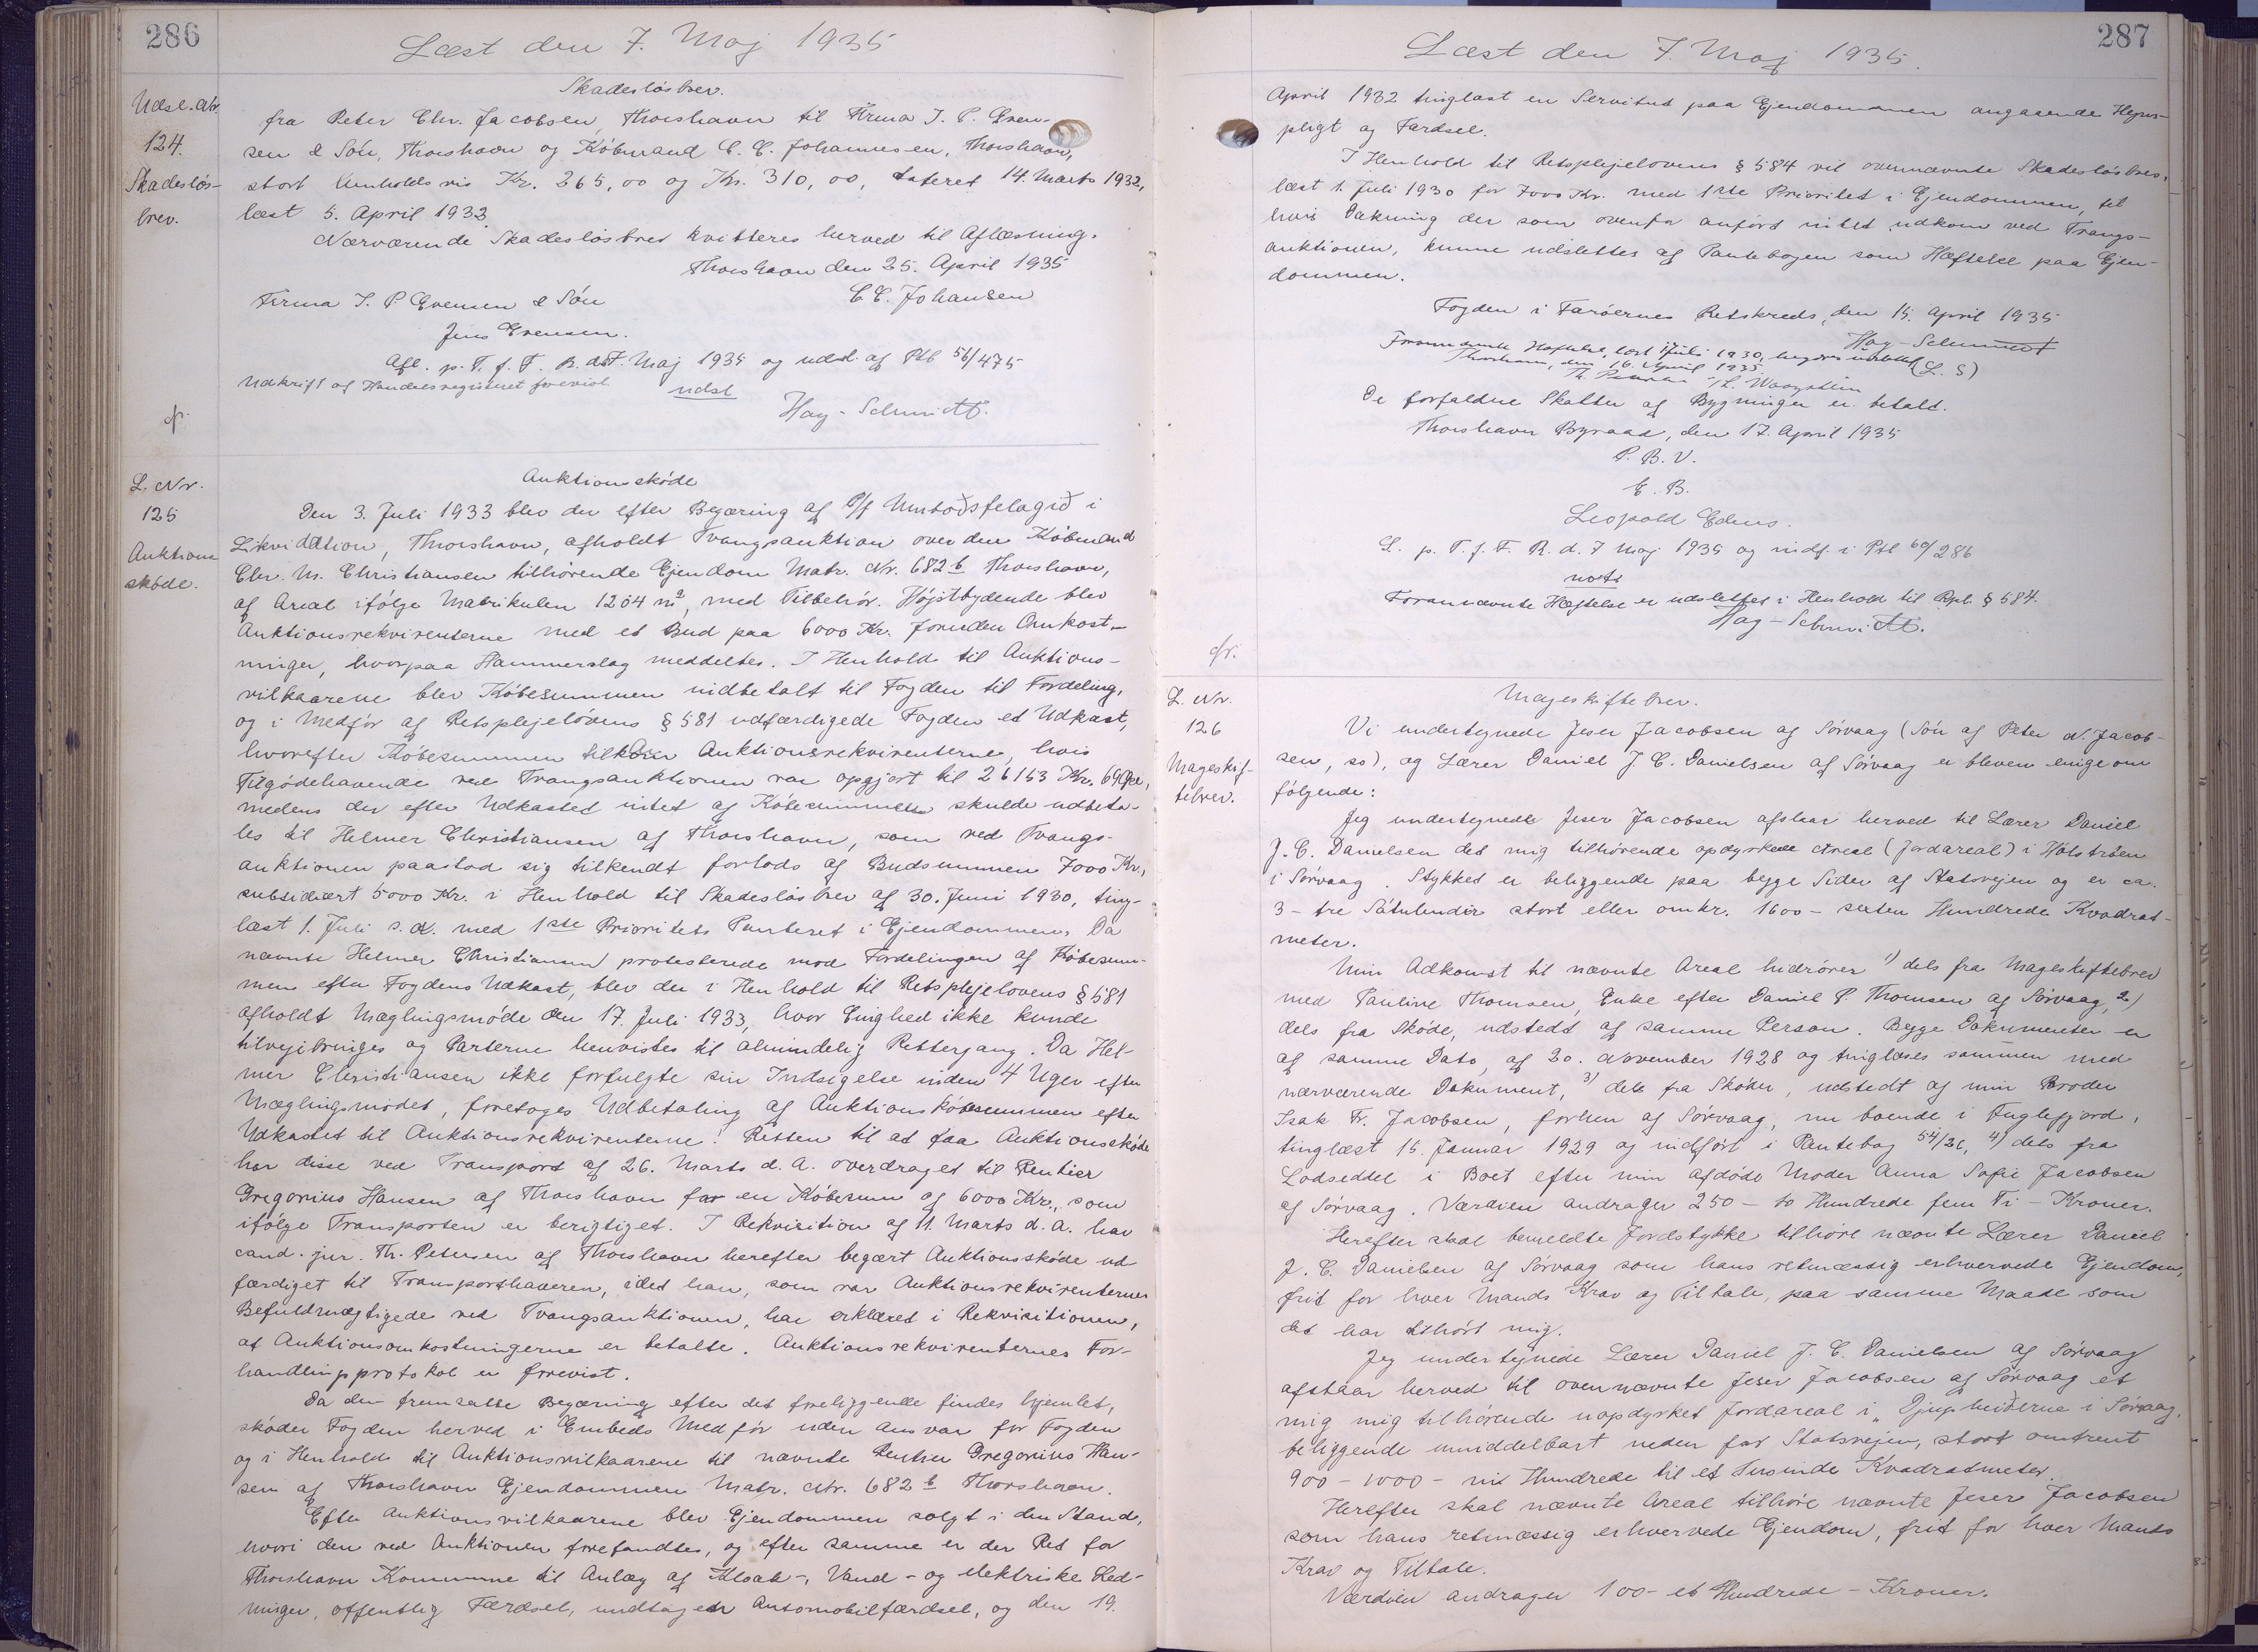 286
Læst den 7. Maj 1935
Udsl. Nr.
124.
Skadesløs-
brev.
Skadesløsbrev.
fra Peter Chr. Jacobsen, Thorshavn til Firma J. P. Even-
sen & Søn, Thorshavn og Købmand C. C. Johannesen, Thorshavn,
stort henholdsvis Kr. 265,00 og Kr. 310,00, dateret 14. Marts 1932,
læst 5. April 1932.
Nærværende Skadesløsbrev kvitteres herved til Aflæsning.
Thorshavn den 25. April 1935
Firma J. P. Evensen & Søn
C. C. Johansen
Jens Evensen.
Afl. p. T. f. F. R. d. 7. Maj 1935 og udsl. af Ptb 56/475
Udskrift af Handelsregistret forevist.
udsl
Hay-Schmidt.
L. Nr.
125
Auktions
skøde.
Auktionsskøde
Den 3. Juli 1933 blev der efter Begæring af P/f Umboðsfelagið i
Likvidation, Thorshavn, afholdt Tvangsauktion over den Købmand
Chr. M. Christiansen tilhørende Ejendom Matr. Nr. 682 b Thorshavn,
af Areal ifølge Matrikulen 1204 m², med Tilbehør. Højstbydende blev
Auktionsrekvirenterne med et Bud paa 6000 Kr. foruden Omkost-
ninger, hvorpaa Hammerslag meddeltes. I Henhold til Auktions-
vilkaarene blev Købesummen indbetalt til Fogden til Fordeling,
og i Medfør af Retsplejelovens § 581 udfærdigede Fogden et Udkast,
hvorefter Købesummen tilkom Auktionsrekvirenterne, hvis
Tilgodehavende ved Tvangsauktionen var opgjort til 26153 Kr. 69 Øre,
medens der efter Udkastet intet af Købesummen skulde udbeta-
les til Helmer Christiansen af Thorshavn, som ved Tvangs-
auktionen paastod sig tilkendt forlods af Budsummen 7000 Kr.,
subsidiært 5000 Kr. i Henhold til Skadesløsbrev af 30. Juni 1930, ting-
læst 1. Juli s. A. med 1ste Prioritets Panteret i Ejendommen. Da
nævnte Helmer Christiansen protesterede mod Fordelingen af Købesum-
men efter Fogdens Udkast, blev der i Henhold til Retsplejelovens § 581
afholdt Mæglingsmøde den 17. Juli 1933, hvor Enighed ikke kunde
tilvejebringes og Parterne henvistes til almindelig Rettergang. Da Hel-
mer Christiansen ikke forfulgte sin Indsigelse inden 4 Uger efter
Mæglingsmødet, foretoges Udbetaling af Auktionskøbesummen efter
Udkastet til Auktionsrekvirenterne. Retten til at faa Auktionsskøde
har disse ved Transport af 26. Marts d. A. overdraget til Rentier
Gregorius Hansen af Thorshavn for en Købesum af 6000 Kr., som
ifølge Transporten er berigtiget. I Rekvisition af 11. Marts d. A. har
cand. jur. Th. Petersen af Thorshavn herefter begært Auktionsskøde ud-
færdiget til Transporthaveren, idet han, som var Auktionsrekvirenternes
Befuldmægtigede ved Tvangsauktionen, har erklæret i Rekvisitionen,
at Auktionsomkostningerne er betalte. Auktionsrekvirenternes For-
handlingsprotokol er forevist.
Da den fremsatte Begæring efter det foreliggende findes hjemlet,
skøder Fogden herved i Embeds Medfør uden Ansvar for Fogden
og i Henhold til Auktionsvilkaarene til nævnte Rentier Gregorius Han-
sen af Thorshavn Ejendommen Matr. Nr. 682 b Thorshavn.
Efter Auktionsvilkaarene blev Ejendommen solgt i den Stand,
hvori den ved Auktionen forefandtes, og efter samme er der Ret for
Thorshavn Kommune til Anlæg af Kloak-, Vand- og elektriske Led-
ninger, offentlig Færdsel, undtagen Automobilfærdsel, og den 19.
287
Læst den 7. Maj 1935.
April 1932 tinglæst en Servitut paa Ejendommen angaaende Hegns-
pligt og Færdsel.
I Henhold til Retsplejelovens § 584 vil ovennævnte Skadesløsbrev,
læst 1. Juli 1930 for 7000 Kr. med 1ste Prioritet i Ejendommen, til
hvis Dækning der som ovenfor anført intet udkom ved Tvangs-
auktionen, kunne udslettes af Pantebogen som Hæftelse paa Ejen-
dommen.
Fogden i Færøernes Retskreds, den 15. April 1935
Hay-Schmidt
(L. S)
Forannævnte Hæftelse, læst 1 Juli 1930, begæres udslettet
Thorshavn, den 16. April 1935
Th. Petersen
De forfaldne Skatter af Bygninger er betalt.
Thorshavn Byraad, den 17. April 1935
P. B. V.
E. B.
Leopold
L. p. T. f. F. R. d. 7 Maj 1935 og indf. i Ptb 60/286
not
Forannævnte Hæftelse er udslettet i Henhold til Rpl. § 584.
Hay-Schmidt.
L. Nr.
126
Mageskif-
tebrev.
Mageskiftebrev.
Vi undertegnede Jeser Jacobsen af Sørvaag (Søn af Peter N. Jacob-
sen, ss), og Lærer Daniel J. C. Danielsen af Sørvaag er bleven enige om
følgende:
Jeg undertegnede Jeser Jacobsen afstaar herved til Lærer Daniel
J. C. Danielsen det mig tilhørende opdyrkede Areal (Jordareal) i
i Sørvaag. Stykket er beliggende paa begge Sider af Statsvejen og er ca.
3 - tre Sátulendir stort eller omkr. 1600 - seksten Hundrede Kvadrat-
meter.
Min Adkomst til nævnte Areal hidrører 1) dels fra Mageskiftebrev
med Pauline Thomsen, Enke efter Daniel P. Thomsen af Sørvaag, 2)
dels fra Skøde, udstedt af samme Person. Begge Dokumenter er
af samme Dato, af 20. November 1928 og tinglæses sammen med
nærværende Dokument, 3) dels fra Skøder, udstedt af min Broder
Isak Fr. Jacobsen, forhen af Sørvaag, nu boende i Fuglefjord,
tinglæst 15. Januar 1929 og indført i Pantebog 54/26, 4) dels fra
Lodseddel i Boet efter min afdøde Moder Anna Sofie Jacobsen
af Sørvaag. Værdien andrager 250 - to Hundrede fem Ti - Kroner.
Herefter skal bemeldte Jordstykke tilhøre nævnte Lærer Daniel
J. C. Danielsen af Sørvaag som hans retmæssig erhvervede Ejendom,
frit for hver Mands Krav og Tiltale, paa samme Maade som
det har tilhørt mig.
Jeg undertegnede Lærer Daniel J. C. Danielsen af Sørvaag
afstaar herved til ovennævnte Jeser Jacobsen af Sørvaag et
mig mig tilhørende uopdyrket Jordareal i "Djupheiðerne i Sørvaag,
beliggende umiddelbart neden for Statsvejen, stort omtrent
900 - 1000 - ni Hundrede til et Tusinde Kvadratmeter.
Herefter skal nævnte Areal tilhøre nævnte Jeser Jacobsen
som hans retmæssig erhvervede Ejendom, frit for hver Mands
Krav og Tiltale.
Værdien andrager 100 - et Hundrede - Kroner.